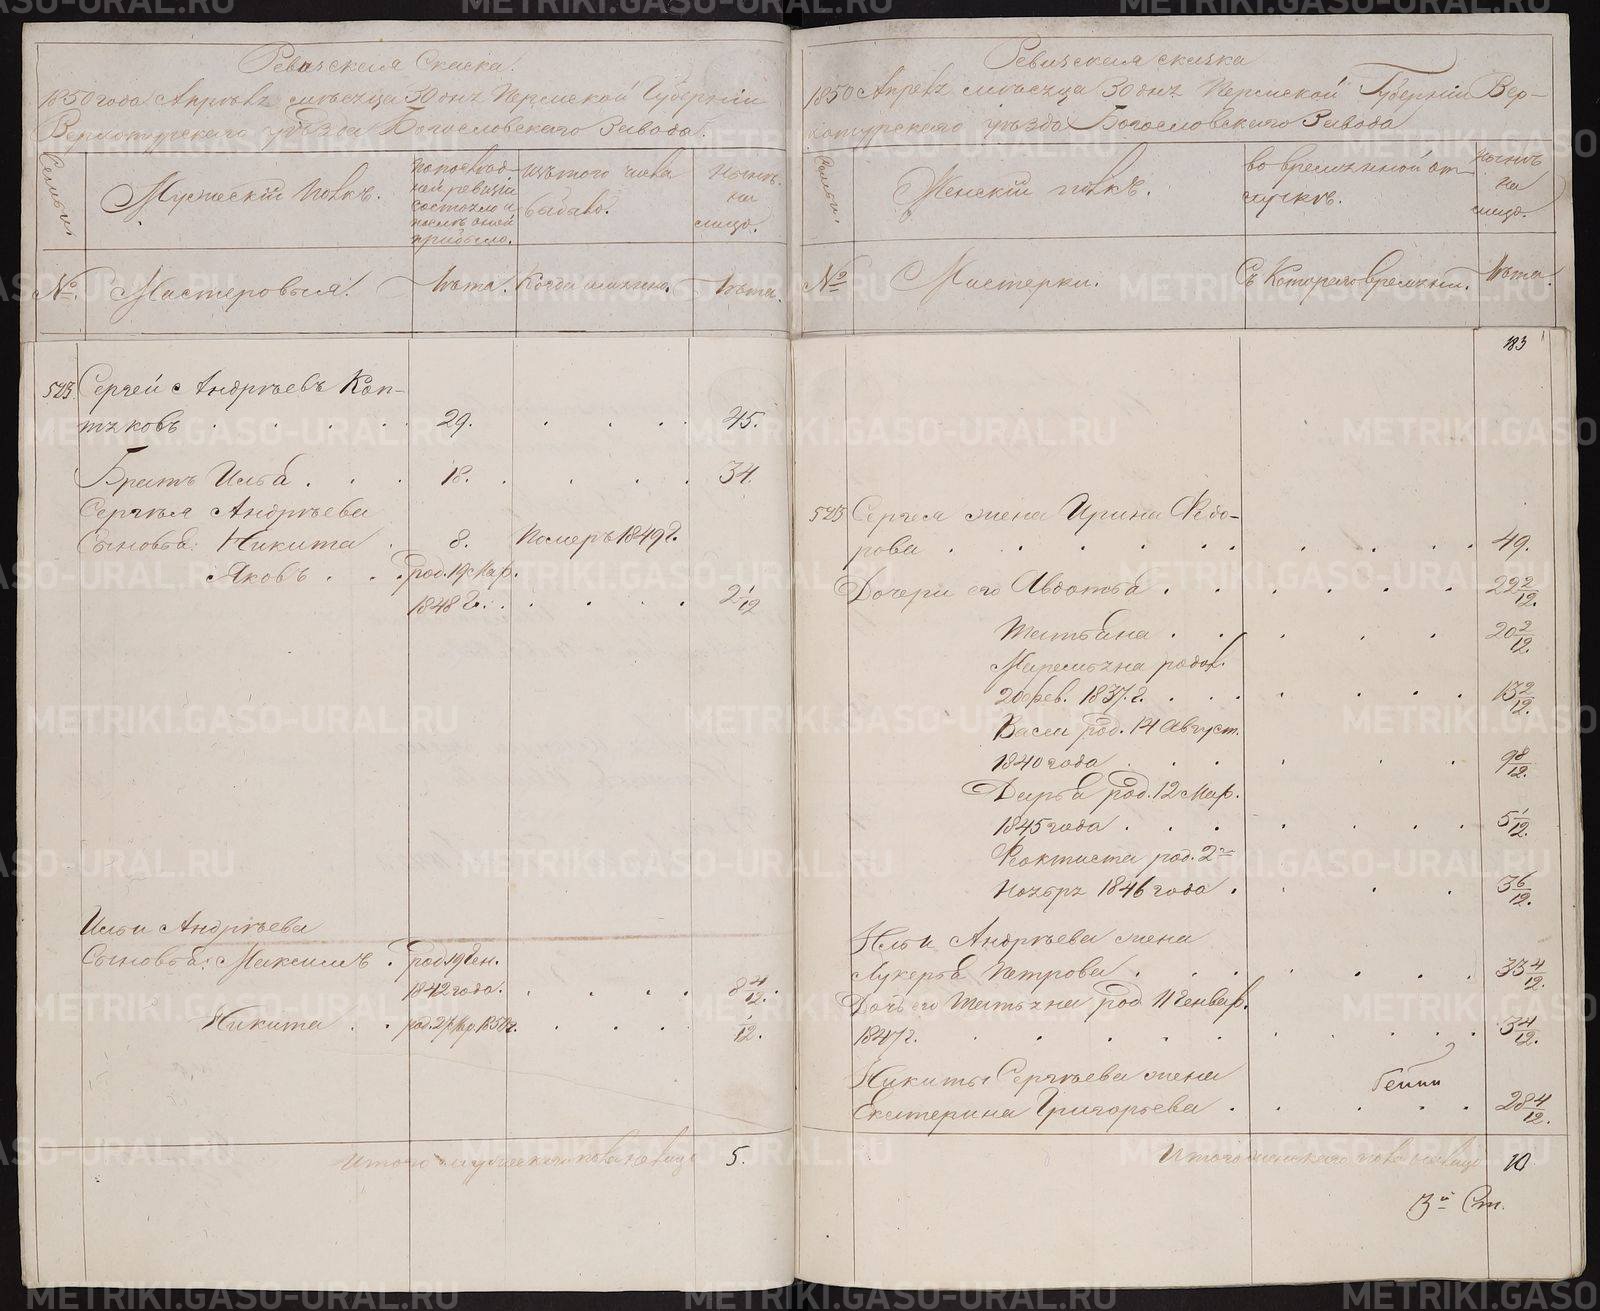 Ревизская Сказка.
1850 года Апреля месяца 30 дня Пермской Губернии
Верхотурского уѣзда Богословского Завода.
Семьи
Мужескій полъ.
По послѣд-
ней ревизіи
состояло и
послѣ оной
прибыло.
Изъ того числа
выбыло.
Нынѣ
на
лицо.
№. Мастеровыя. Лѣта. Когда именно. Лѣта.
523 Сергей Андреевъ Коп-
тяковъ . . . . 29. . . . . 45.
Братъ Илья . . . 18. . . . . 34.
Сергѣя Андрѣева
Сыновья: Никита . 8. Померъ 1849 г.
Яковъ . . . род. 19 Мар.
1848 г. . . . . . 2 1/12
Ильи Андрѣева
Сыновья: Максимъ . род. 19 Ген.
1842 года. . . . . 8 4/12.
Никита . . род. 27 Мар. 1850 г. . . . . 1/12.
Итого мужеска пола на лицо 5.
Ревизская сказка
1850 Апреля месяца 30 дня Пермской Губерніи Вер-
хотурского уѣзда Богословского Завода
Семьи.
Женскій полъ.
Во временной от-
лучкѣ.
Нынѣ
на
лицо.
№ Мастерки. Съ Котораго времени. Лѣта.
183
523 Сергея жена Ирина Федо-
рова . . . . . . . . . 49.
Дочери его Авдотья . . . . . . 29 2/12.
Татьяна . . . . . 20 2/12.
Маремьяна родов.
20 фев. 1837 г. . . . . . . 13 2/12.
Васса род. 14 Август.
1840 года . . . . . . 9 8/12.
Дарья род. 12 Мар.
1845 года . . . . . . 5 1/12.
Феоктиста род. 2го
Ноября 1846 года . . . . 3 6/12.
Ильи Андрѣева жена
Лукерья Петрова . . . . . . . 33 4/12.
Дочь его Татьяна род 11 Генвар.
1847 г. . . . . . . . . . 3 4/12.
Никиты Сергѣева жена
Екатерина Григорьева . . . . . 28 4/12.
Итого женскаго пола на лицо 10
3й Ст.
METRIKI.GASO-URAL.RU